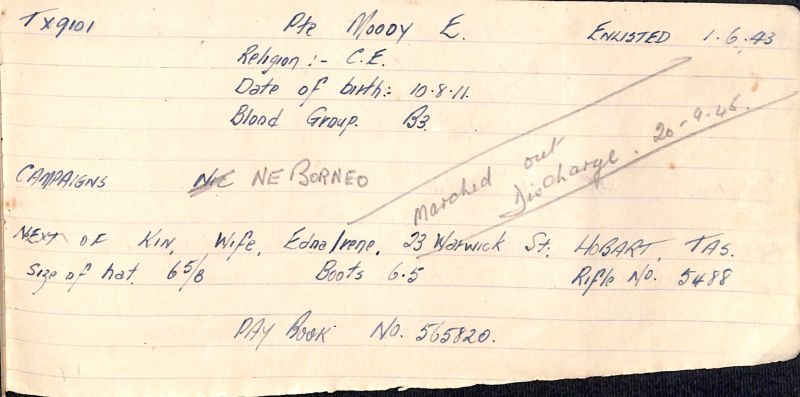 TX9101 Pte Moody E. ENLISTED 1.6.43
Religion :- C.E.
Date of birth :- 10.8.11.
Blood Group. B3.
CAMPAIGNS NIL NE BORNEO
Marched out
Discharge. 20-9-45.
NEXT OF KIN, Wife, Edna Irene, 23 Warwick St. HOBART, TAS.
Size of hat. 6 5/8 Boots 6.5 Rifle No. 5488
PAY BOOK No. 565820.